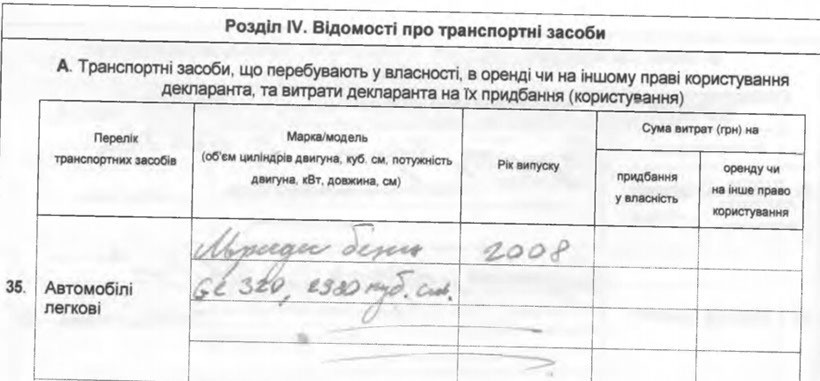 Розділ IV. Відомості про транспортні засоби
А. Транспортні засоби, що перебувають у власності, в оренді чи на іншому праві користування
декларанта, та витрати декларанта на їх придбання (користування)
Перелік
транспортних засобів
Марка/модель
(об'єм циліндрів двигуна, куб. см, потужність
двигуна, кВт, довжина, см)
Рік випуску
Сума витрат (грн) на
придбання
у власність
оренду чи
на інше право
користування
35. Автомобілі
легкові
бенц 2008
GL 320, куб. см.